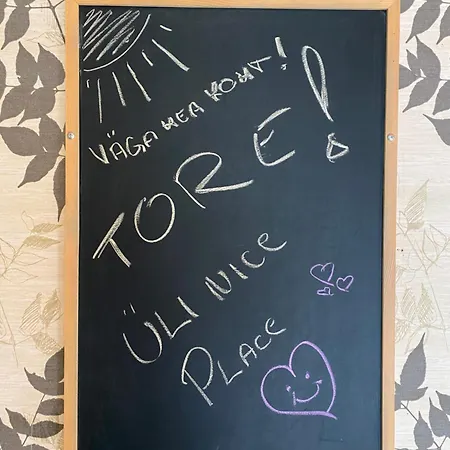 VÄGA HEA KOHT!
TORE!
ÜLI NICE
PLACE